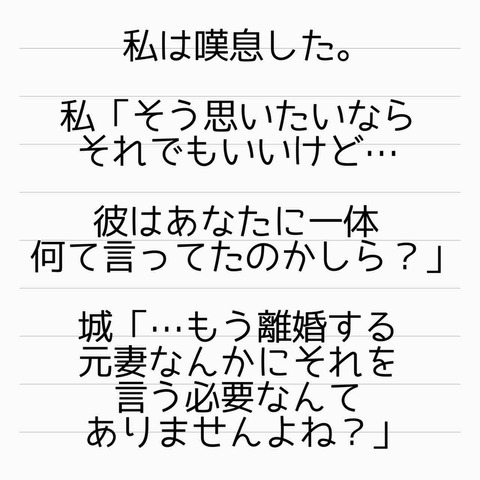 私は嘆息した。
私「そう思いたいなら
それでもいいけど…
彼はあなたに一体
何て言ってたのかしら？」
城「…もう離婚する
元妻なんかにそれを
言う必要なんて
ありませんよね？」